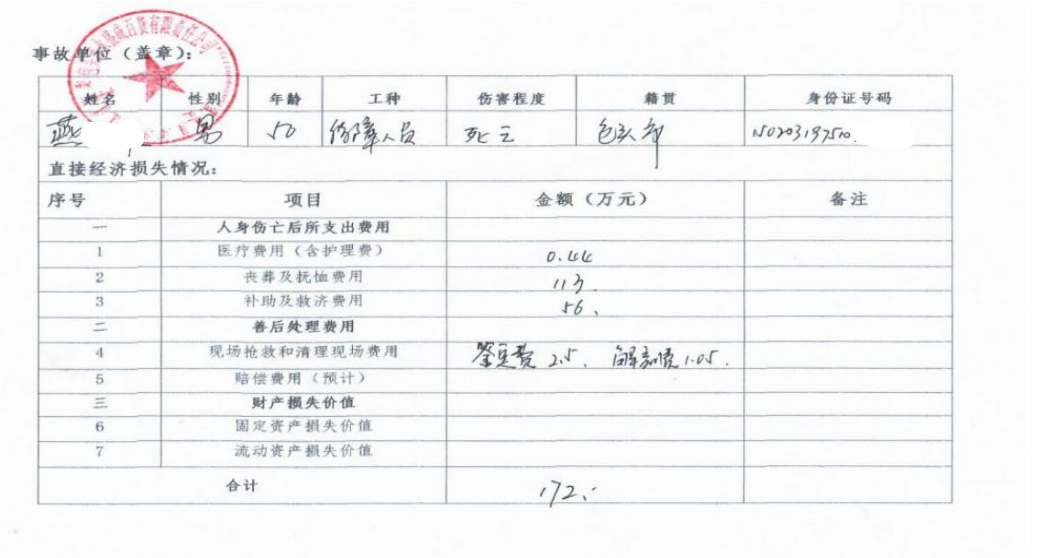 事故单位（盖章）：
姓名 性别 年龄 工种 伤害程度 籍贯 身份证号码
燕 男 50 保障人员 死亡 包头市 150203197510
直接经济损失情况：
序号 项目 金额（万元） 备注
一 人身伤亡后所支出费用
1 医疗费用（含护理费） 0.44
2 丧葬及抚恤费用 113.
3 补助及救济费用 56.
二 善后处理费用
4 现场抢救和清理现场费用 鉴定费 2.5. 解剖费 1.05.
5 赔偿费用（预计）
三 财产损失价值
6 固定资产损失价值
7 流动资产损失价值
合计 172.